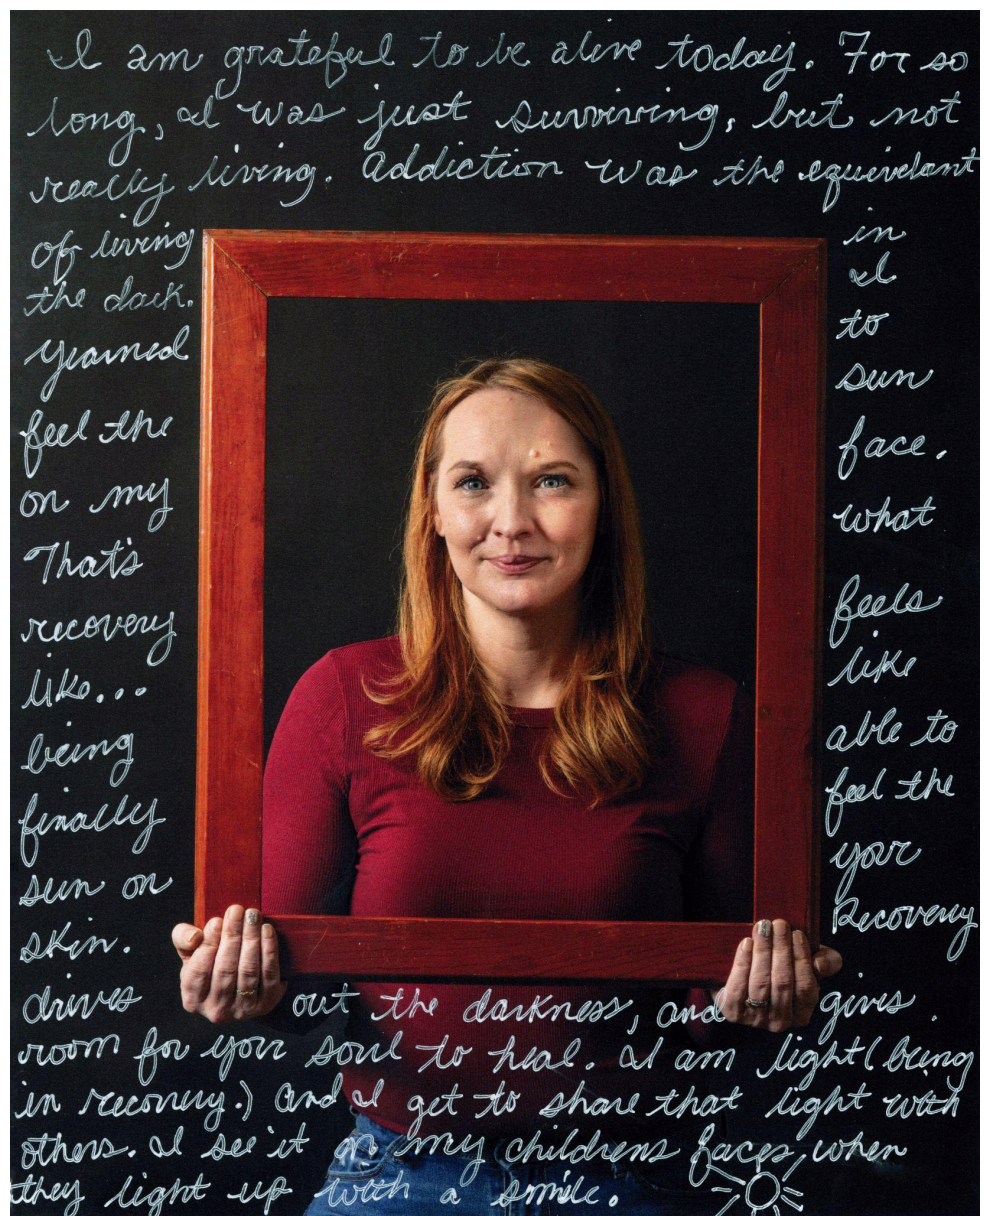 I am grateful to be alive today. For so
long, I was just surviving, but not
really living. Addiction was the equivelant
of living in
the dark. I
yearned to
feel the sun
on my face.
That's what
recovery feels
like... like
being able to
finally feel the
sun on your
skin. Recovery
drives out the darkness, and gives
room for your soul to heal. I am light (being
in recovery.) And I get to share that light with
others. I see it in my childrens faces, when
they light up with a smile.